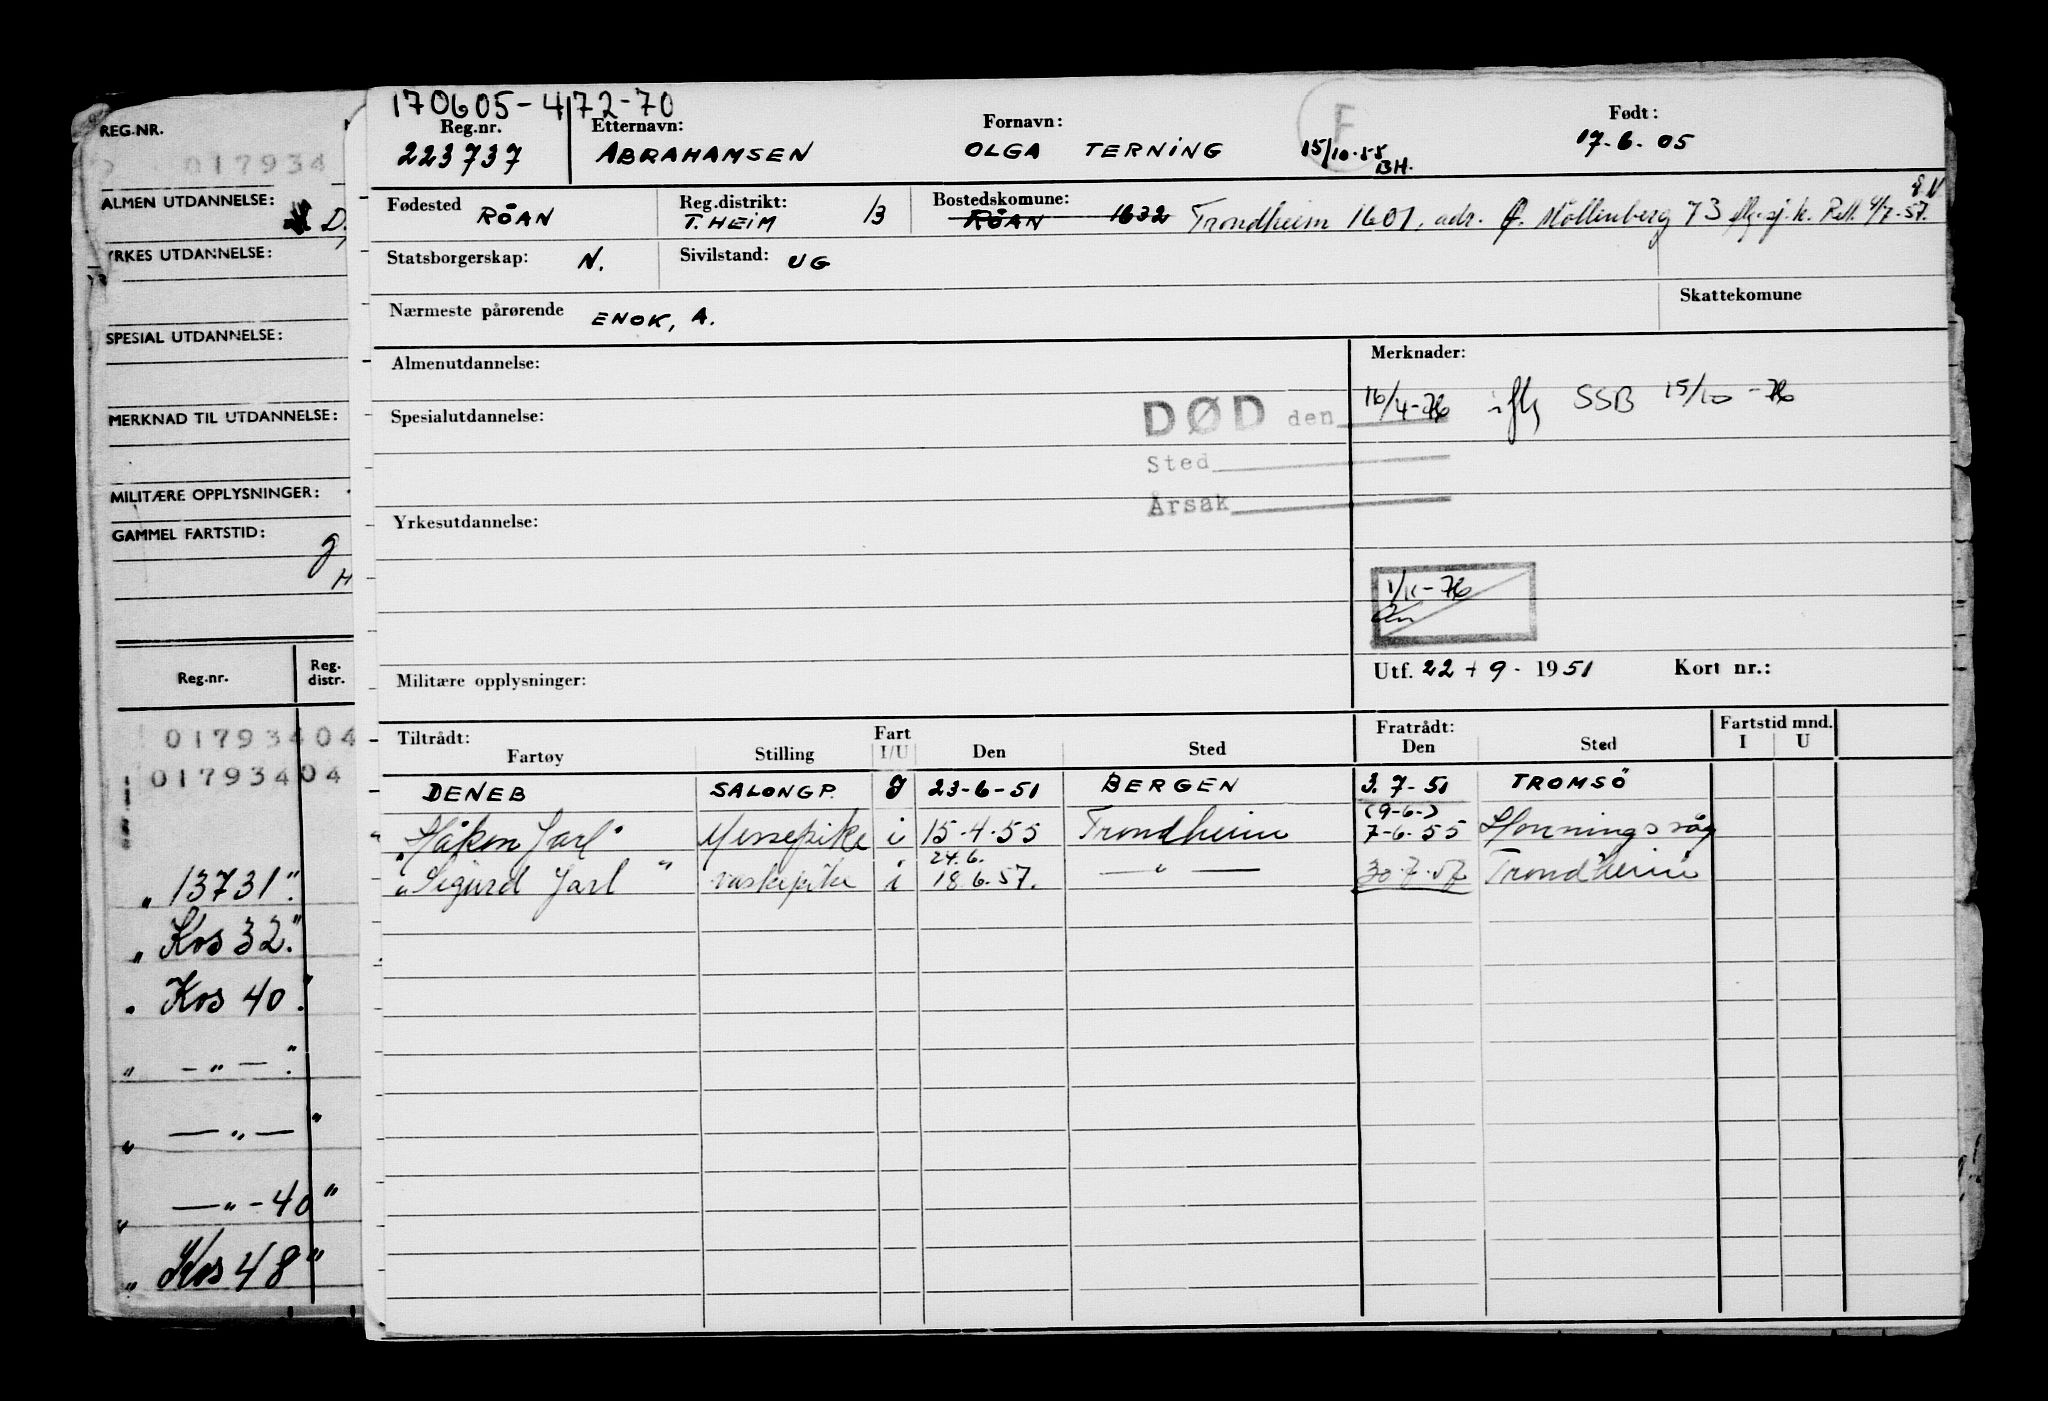 REG.NR.
017934
ALMEN UTDANNELSE:
D.
YRKES UTDANNELSE:
SPESIAL UTDANNELSE:
MERKNAD TIL UTDANNELSE:
MILITÆRE OPPLYSNINGER:
GAMMEL FARTSTID:
g
H
Reg.nr. Reg. distr.
01793404
01793404
" 13731".
" Kos 32".
" Kos 40"
" - " - "
" — " — "
" — " - 40"
" Kos 48"
170605-472-70
Reg.nr. Etternavn: Fornavn: F Født:
223737 ABRAHAMSEN OLGA TERNING 15/10-55 BH. 17-6-05
Fødested RÖAN Reg.distrikt: T.HEIM 13 Bostedskomune: RÖAN 1632 Trondheim 1601. adr. Ø. Møllenberg 73
Statsborgerskap: N. Sivilstand: UG
Nærmeste pårørende ENOK, A. Skattekomune
Almenutdannelse: Merknader:
DØD den 16/4-76 iflg SSB 15/10-76
Spesialutdannelse:
Sted
Årsak
Yrkesutdannelse:
1/11-76
Militære opplysninger: Utf. 22 - 9 - 1951 Kort nr.:
Tiltrådt: Fart Fratrådt: Fartstid mnd.
Fartøy Stilling I/U Den Sted Den Sted I U
DENEB SALONGP. I 23-6-51 BERGEN 3.7-51 TROMSÖ
(9-6-)
" "Håkon Jarl" Messepike i 15-4-55 Trondheim 7-6-55 Honningsvåg
24.6.
"Sigurd Jarl" vaskepike i 18.6.57. — " — 30.7.57 Trondheim